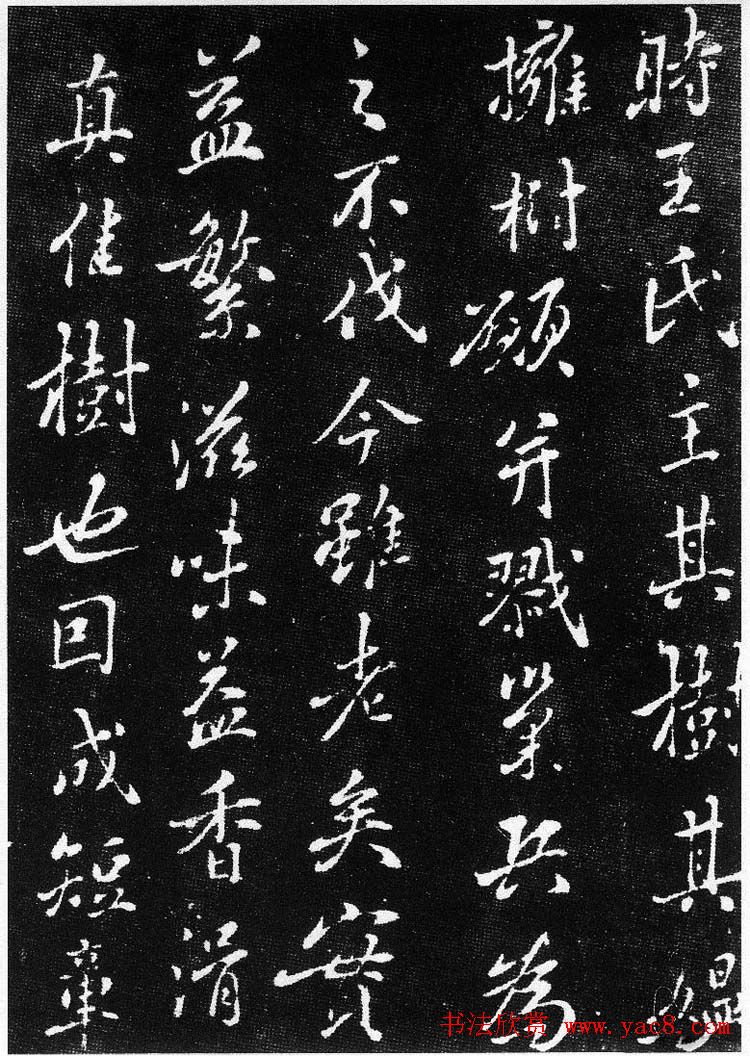 時王氏主其樹其媪
擁樹願并戮巢兵為
之不伐今雖老矣實
益繁滋味益香滑
真佳樹也因成短章
书法欣赏 www.yac8.com